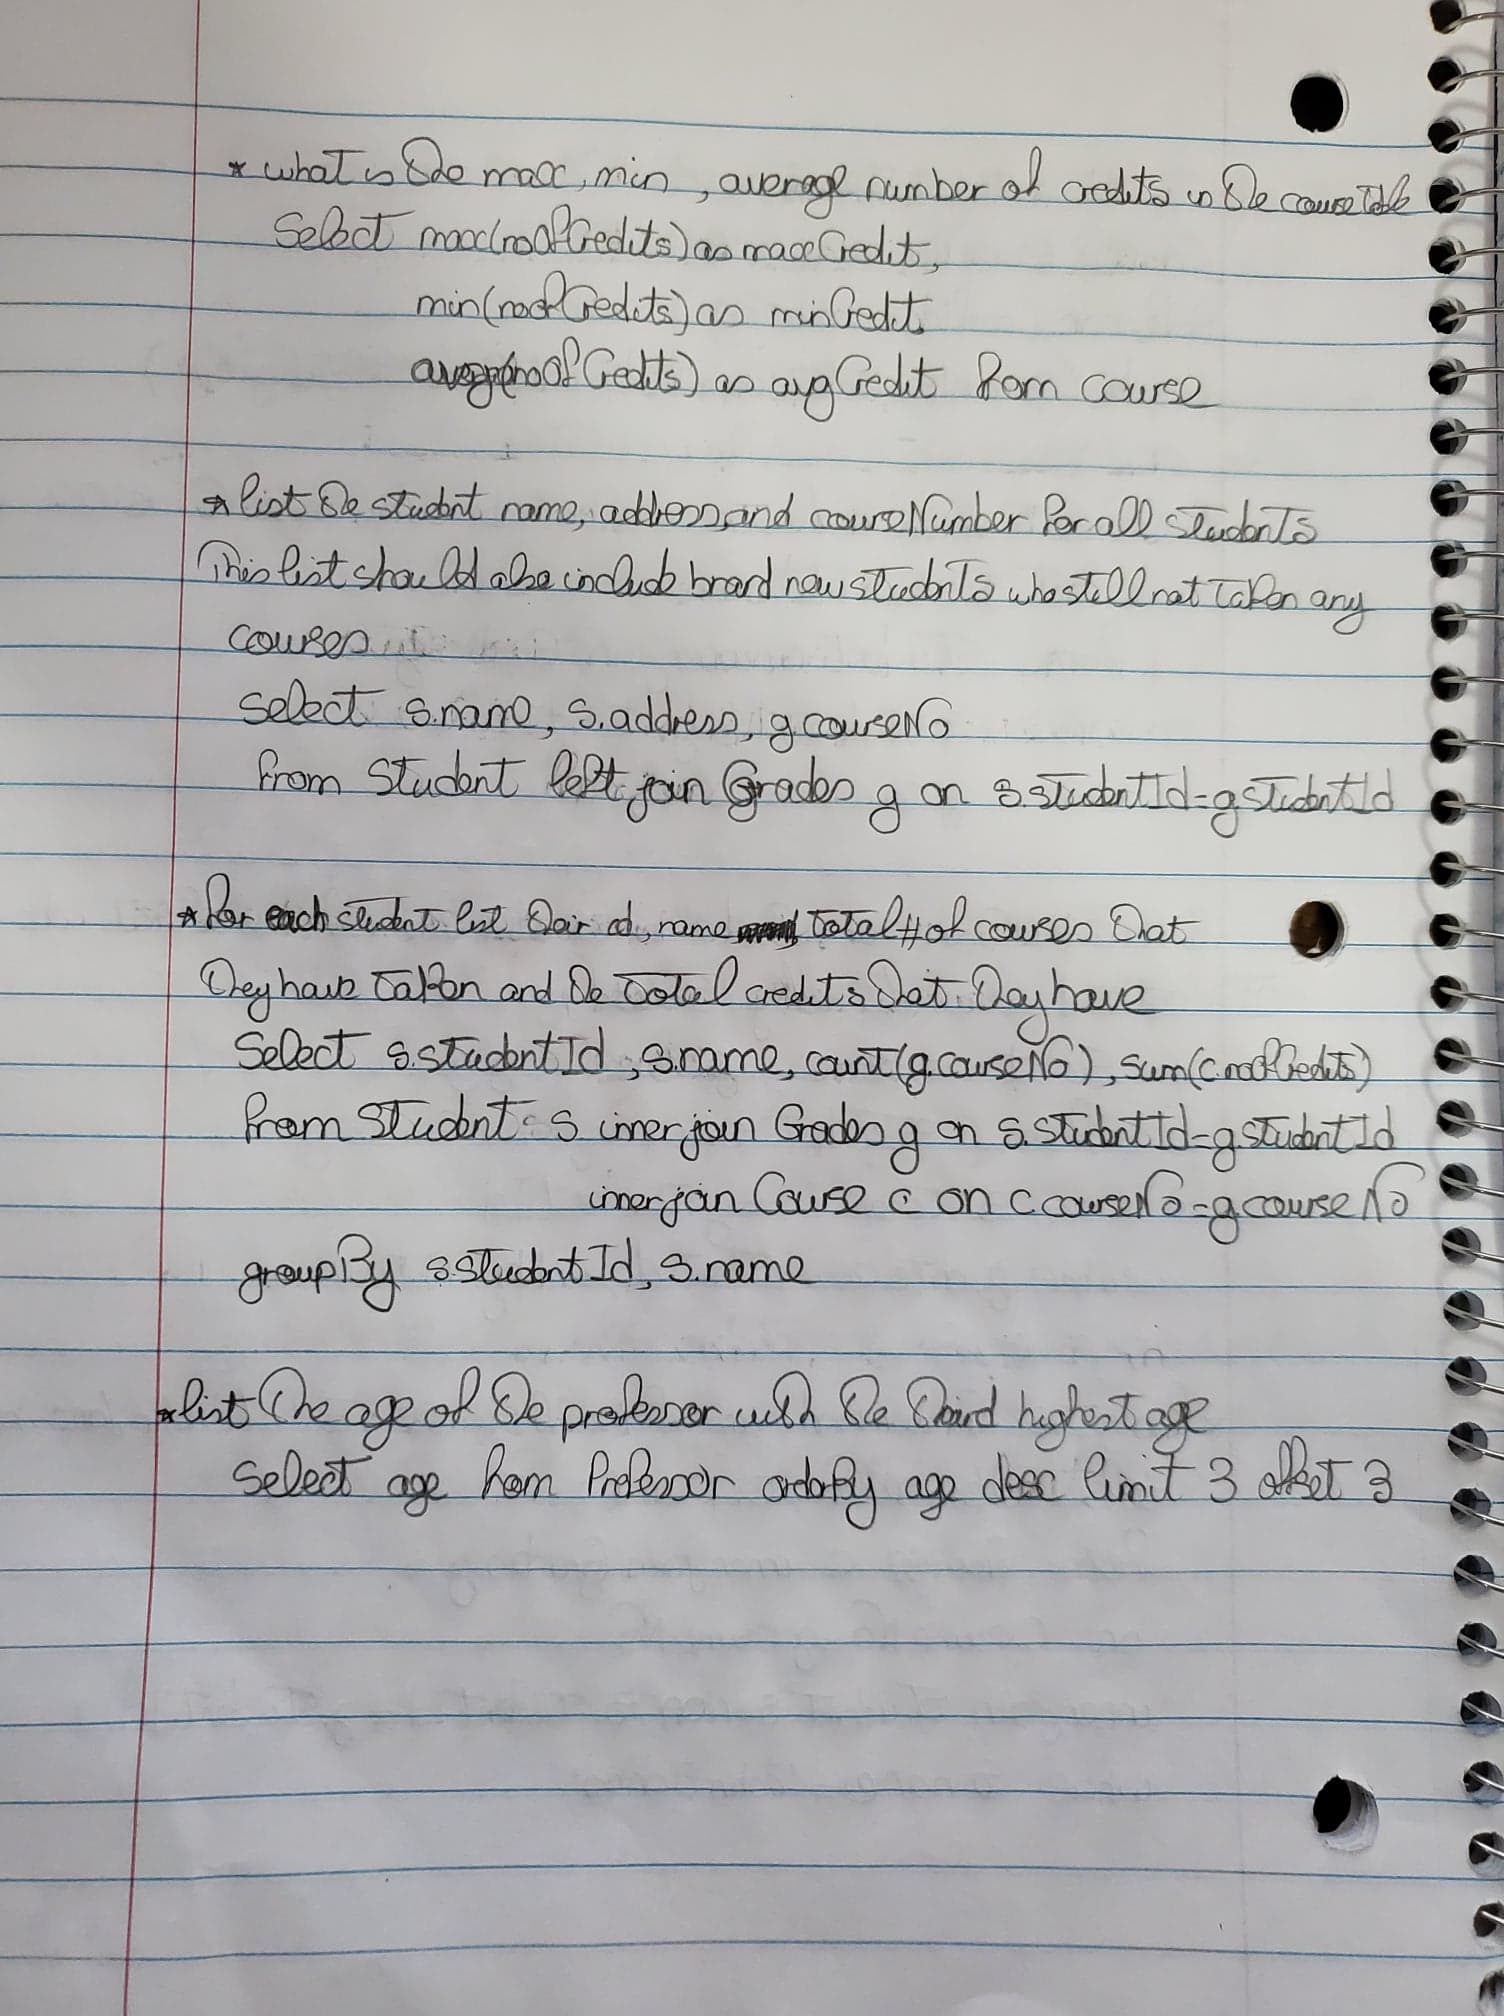 * what is the max, min, average number of credits in the course table
Select max(noOfCredits) as maxCredit,
min(noOfCredits) as minCredit,
avg(noOfCredits) as avgCredit from course
* list the student name, address, and courseNumber for all students
This list should also include brand new students who still not taken any
courses
select s.name, s.address, g.courseNo
from Student left join Grades g on s.studentId=g.studentId
* for each student list their id, name total # of courses that
they have taken and the total credits that they have
Select s.studentId, s.name, count(g.courseNo), sum(c.noOfCredits)
from Student s inner join Grades g on s.studentId=g.studentId
inner join Course c on c.courseNo=g.courseNo
groupBy s.studentId, s.name
* list the age of the professor with the third highest age
Select age from Professor orderBy age desc limit 3 offset 3